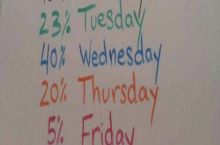 23% Tuesday
40% Wednesday
20% Thursday
5% Friday